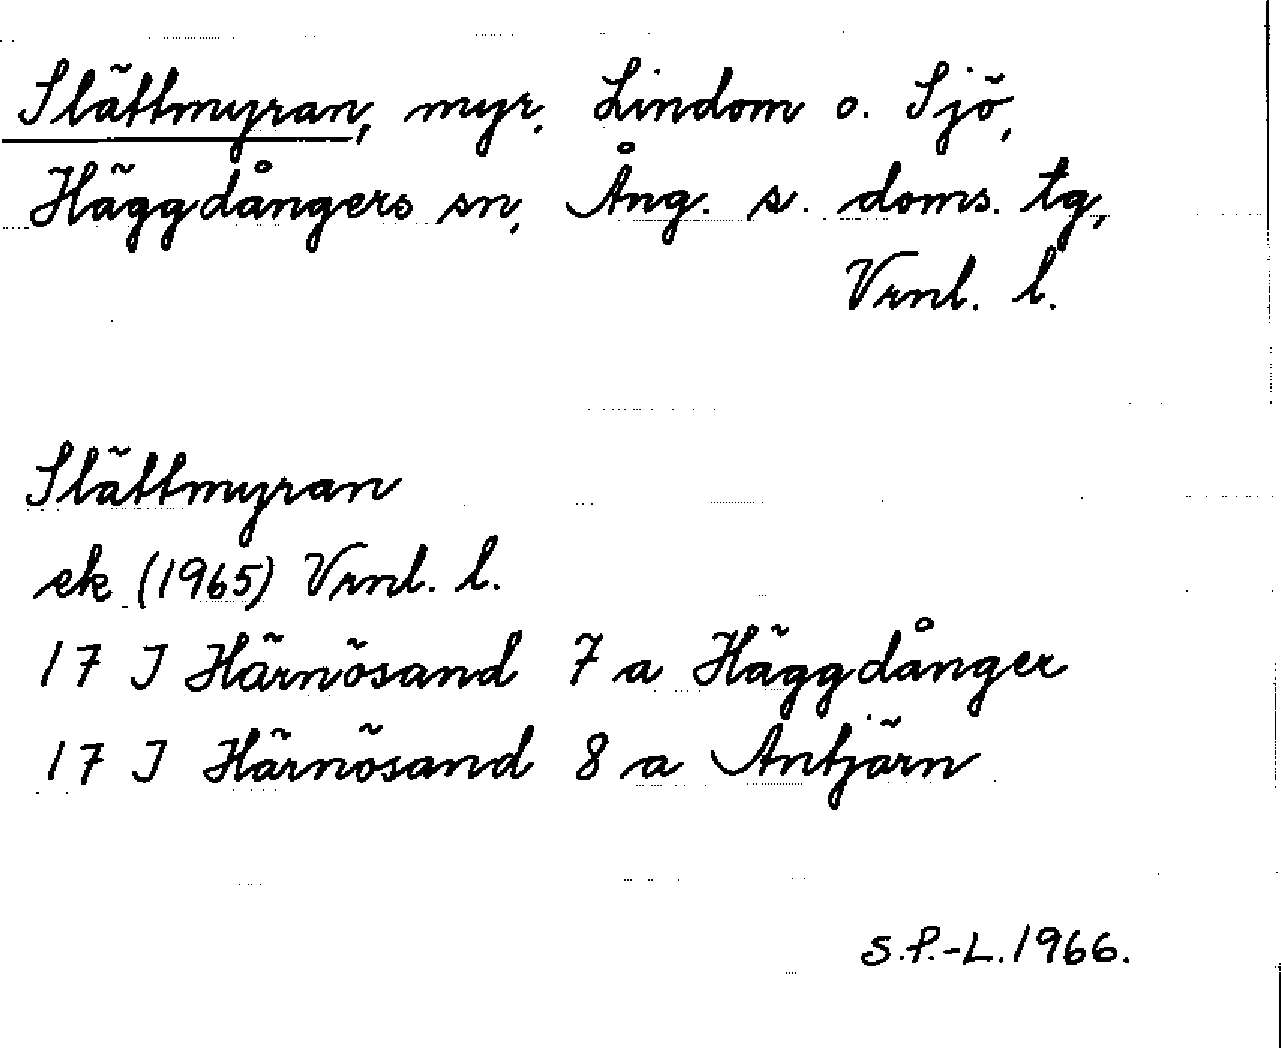 Slättmyran, myr, Lindom o. Sjö,
Häggdångers sn, Ång. s. doms. tg,
Vrnl. l.
Slättmyran
ek (1965) Vrnl. l.
17 I Härnösand 7 a Häggdånger
17 I Härnösand 8 a Antjärn
S.P.-L. 1966.